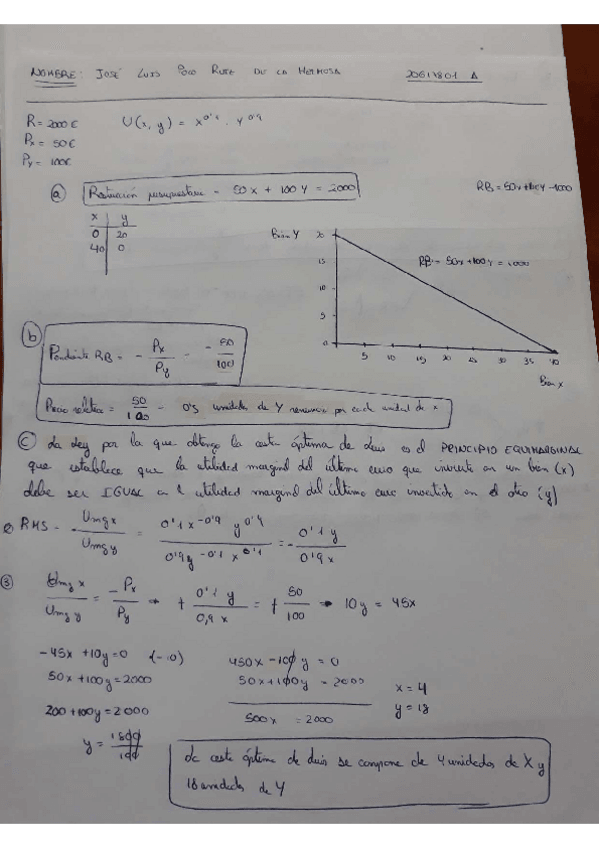 NOMBRE: JOSÉ LUIS POZO RUIZ DE LA HERMOSA
R = 2000 € U(x, y) = x^0'1 · y^0'9
Px = 50 €
Py = 100 €
a) Restricción presupuestaria = 50x + 100y = 2000
x y
0 20
40 0
Bien Y
20
15
10
5
0
5 10 15 20 25 30 35 40
Bien X
b) Pendiente RB = - Px/Py = - 50/100
Precio relativo = 50/100 = 0'5 unidades de Y por cada unidad de x
c) La ley por la que obtengo la cesta óptima de Luis es el PRINCIPIO EQUIMARGINAL
que establece que la utilidad marginal del último euro que invierte en un bien (x)
debe ser IGUAL a la utilidad marginal del último euro invertido en el otro (y)
② RMS = - Umg x / Umg y = 0'1 x^-0'9 y^0'9 / 0'9 y^-0'1 x^0'1 = - 0'1 y / 0'9 x
③ Umg x / Umg y = - Px / Py → 0'1 y / 0,9 x = 50 / 100 → 10y = 45x
-45x + 10y = 0 (-10) 450x - 100y = 0
50x + 100y = 2000 50x + 100y = 2000 x = 4
200 + 100y = 2000 500x = 2000 y = 18
y = 1800 / 100
La cesta óptima de Luis se compone de 4 unidades de X y
18 unidades de Y